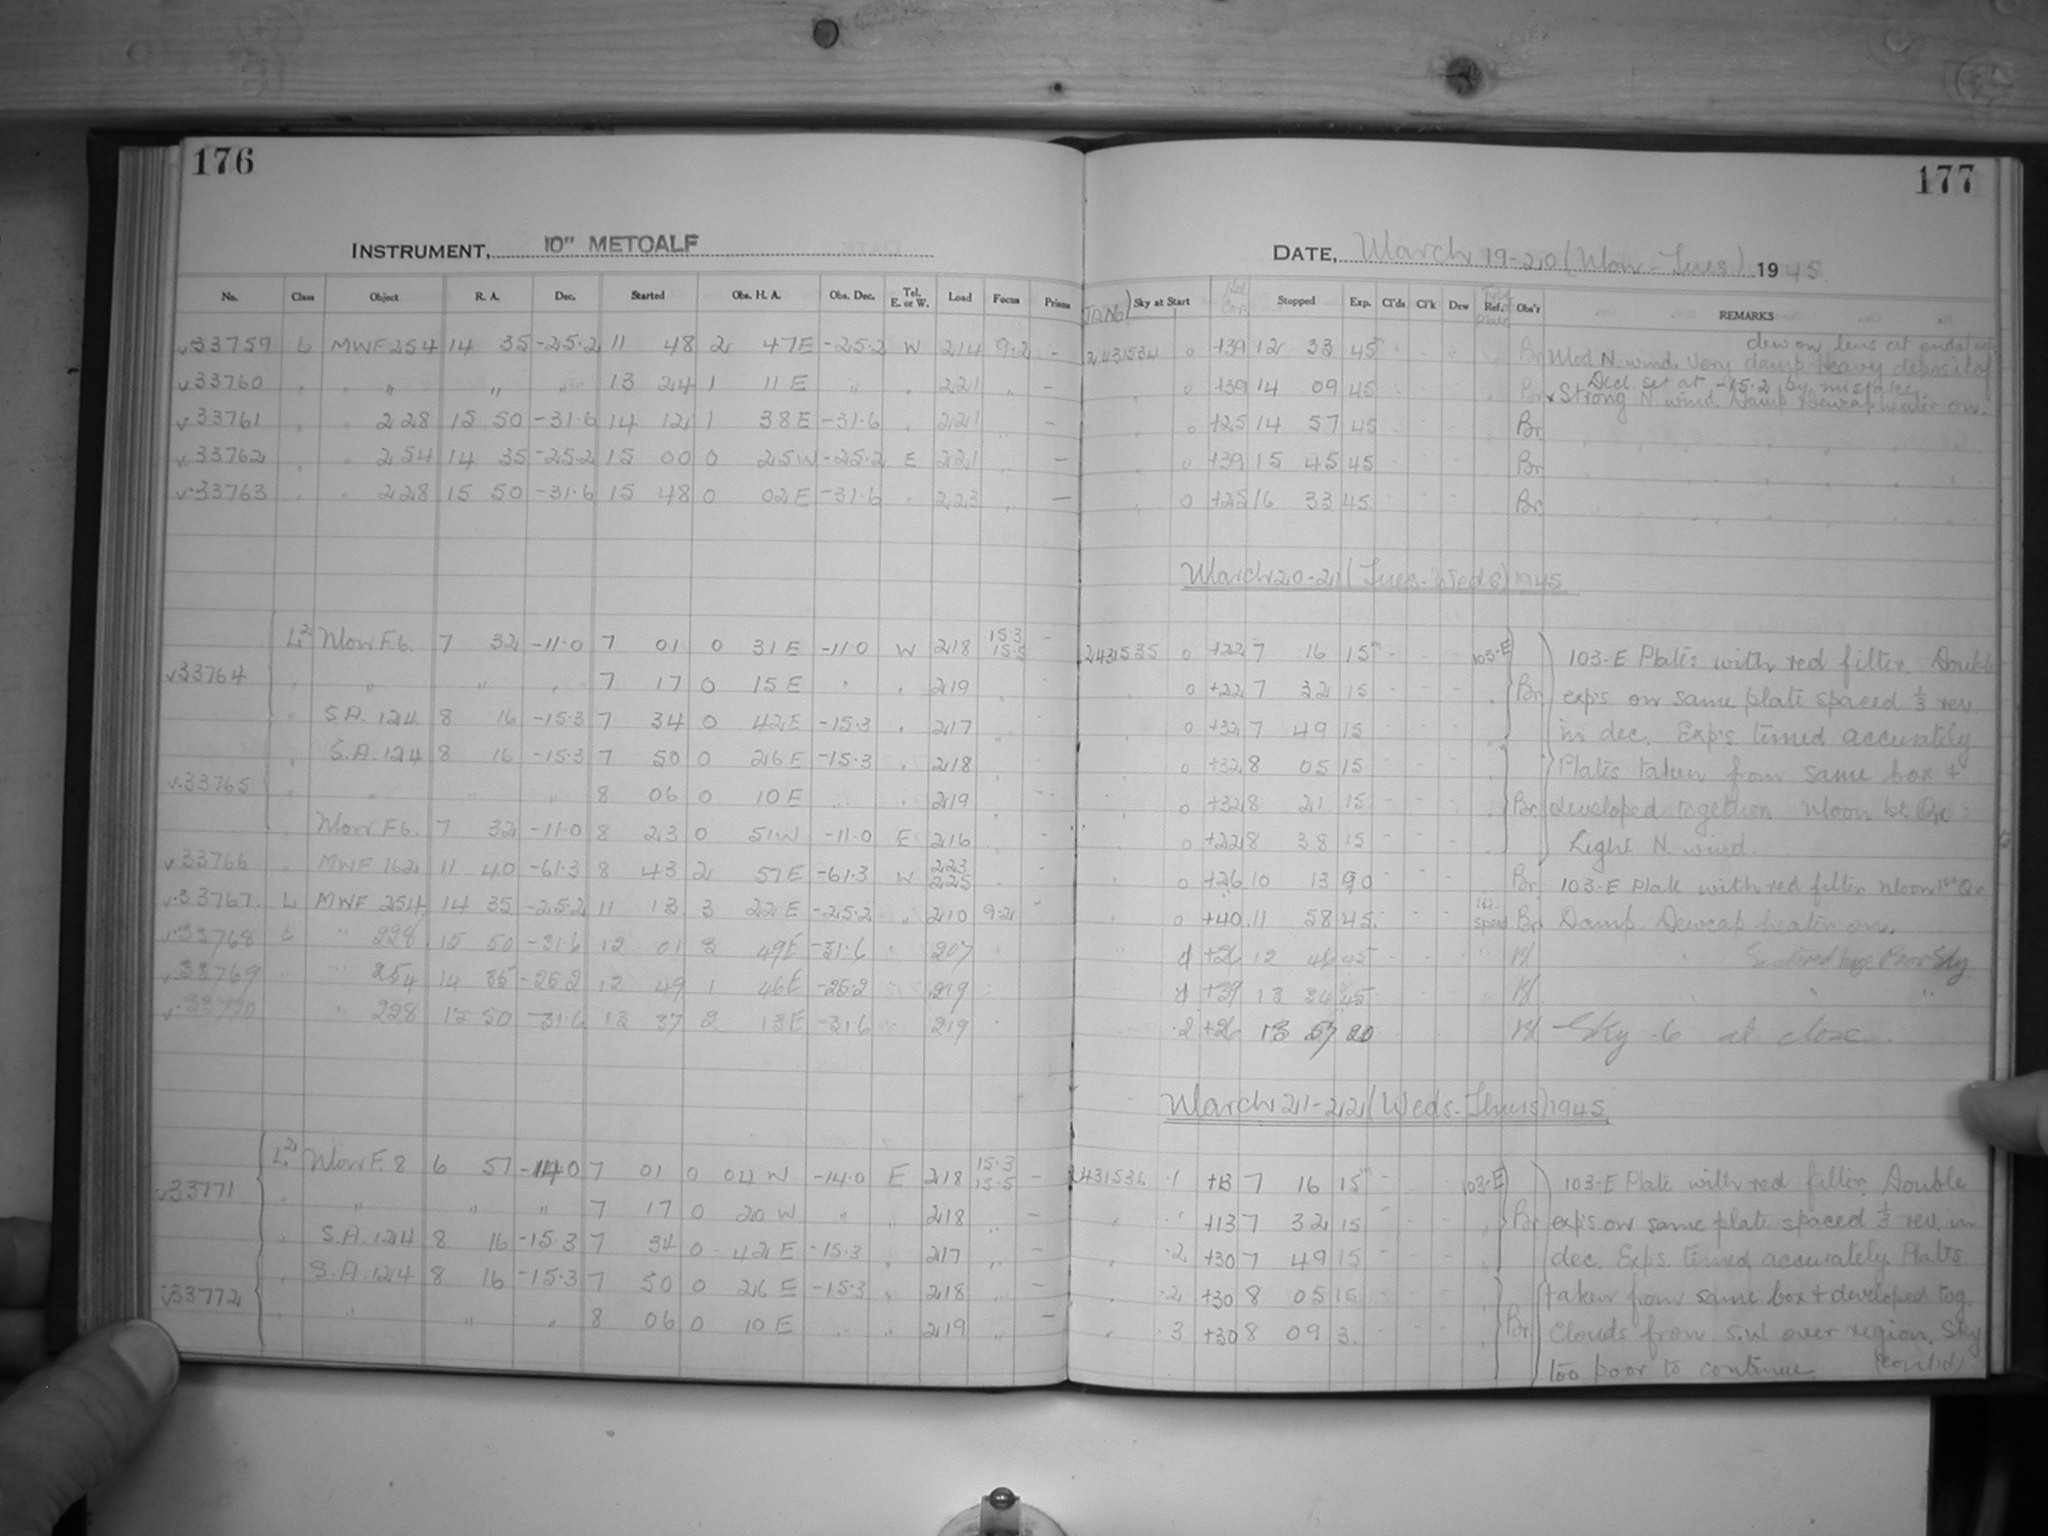 176
177
INSTRUMENT, 10" METCALF
DATE, March 19-20 (Mon - Tues) 1945
No. Class Object R. A. Dec. Started Obs. H. A. Obs. Dec. Tel. E. or W. Load Focus Prisms
Sky at Start Stopped Exp. Cl'ds Cl'k Dew Ref. Obs'r REMARKS
33759 L MWF 254 14 35 -25.2 11 48 2 47E -25.2 W 214 9.2 - 2431534 0 +39 12 33 45 Br Mod N. wind. Very damp heavy deposit of dew on lens at end of
33760 " " " 13 24 1 11E " 221 - 0 +39 14 09 45 Br Decl. set at -15.2 by mistake. Strong N. wind. Damp Dewcap heater on.
33761 228 15 50 -31.6 14 12 1 38E -31.6 221 - 0 +25 14 57 45 Br
33762 254 14 35 -25.2 15 00 0 25W -25.2 E 221 - 0 +39 15 45 45 Br
33763 228 15 50 -31.6 15 48 0 02E -31.6 223 - 0 +25 16 33 45 Br
March 20-21 (Tues-Weds) 1945
L2 Mon F.6. 7 32 -11.0 7 01 0 31E -11.0 W 218 15.3 15.5 - 2431535 0 +22 7 16 15m 103-E 103-E Plates with red filter. Double
33764 " " " 7 17 0 15E 219 0 +22 7 32 15 Br exp's on same plate spaced 1/3 rev.
S.A. 124 8 16 -15.3 7 34 0 42E -15.3 217 0 +32 7 49 15 in dec. Exp's timed accurately.
S.A. 124 8 16 -15.3 7 50 0 26E -15.3 218 0 +32 8 05 15 Plates taken from same box +
33765 8 06 0 10E 219 0 +32 8 21 15 Br developed together. Moon 1st. Qr.
Mon F6. 7 32 -11.0 8 23 0 51W -11.0 E 216 0 +22 8 38 15 Light N. wind.
33766 MWF 162 11 40 -61.3 8 43 2 57E -61.3 W 223 225 0 +26 10 13 90 Br 103-E Plate with red filter. Moon 1st Qr.
33767 L MWF 254 14 35 -25.2 11 13 3 22E -25.2 210 9.2 - 0 +40 11 58 45 Br Damp. Dewcap heater on.
33768 L " 228 15 50 -31.6 12 01 3 49E -31.6 207 +26 12 46 45 Poor Sky
33769 254 14 35 -25.2 12 49 1 46E -25.2 219 +39 13 34 45
33770 228 15 50 -31.6 13 37 2 13E -31.6 219 .2 +26 13 57 20 Sky .6 at close.
March 21-22 (Weds-Thurs) 1945
L2 Mon F.8 6 57 -14.0 7 01 0 04 W -14.0 E 218 15.3 15.5 - 2431536 .1 +13 7 16 15m 103-E 103-E Plate with red filter. Double
33771 " " " 7 17 0 20 W " " 218 " - +13 7 32 15 Br exp's on same plate spaced 1/3 rev. in
S.A. 124 8 16 -15.3 7 34 0 42E -15.3 " 217 " - .2 +30 7 49 15 dec. Exps. timed accurately. Plates
S.A. 124 8 16 -15.3 7 50 0 26 E -15.3 " 218 " - .2 +30 8 05 15 taken from same box + developed tog.
33772 " " " 8 06 0 10 E " " 219 " - .3 +30 8 09 3. Br Clouds from S.W over region. Sky
too poor to continue. (cont'd)